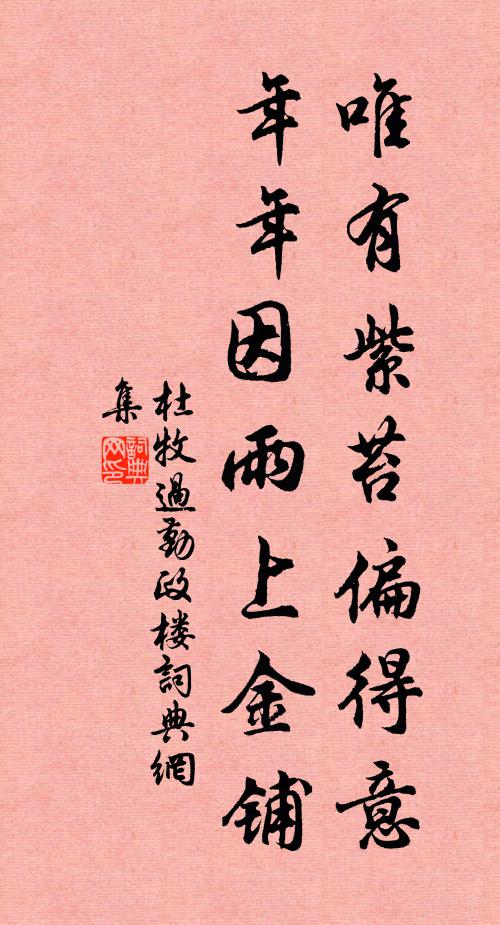 唯有紫苔偏得意
年年因雨上金铺
杜牧過勤政楼詞典網
集
詞典网印